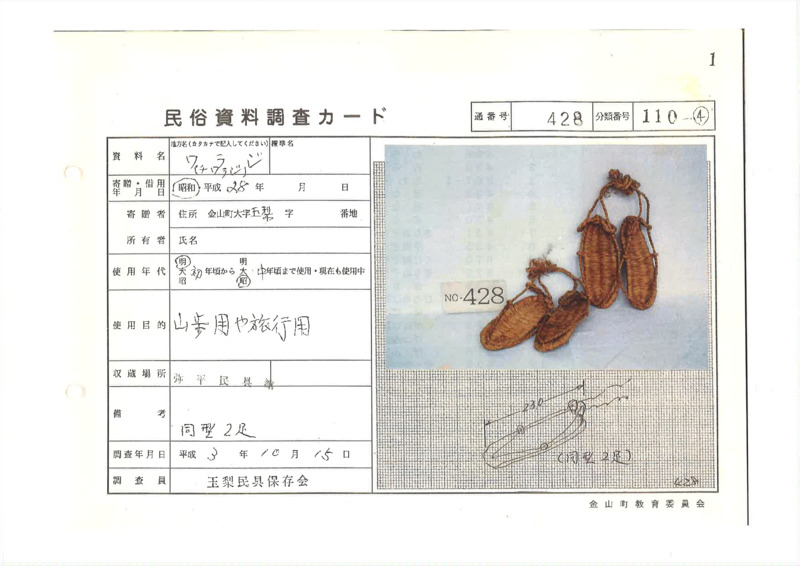 1
民俗資料調査カード
通番号 428 分類番号 110-④
資料名 地方名(カタカナで記入してください) 標準名
寄贈・借用年月日 昭和・平成 28年 月 日
寄贈者 住所 金山町大字玉梨 字 番地
所有者 氏名
使用年代 明大昭 初年頃から 明大昭 中年頃まで使用・現在も使用中
使用目的 山歩用や旅行用
収蔵場所 弥平民具館
備考 同型2足
調査年月日 平成 3年 10月 15日
調査員 玉梨民具保存会
NO.428
230
(同型2足)
428
金山町教育委員会